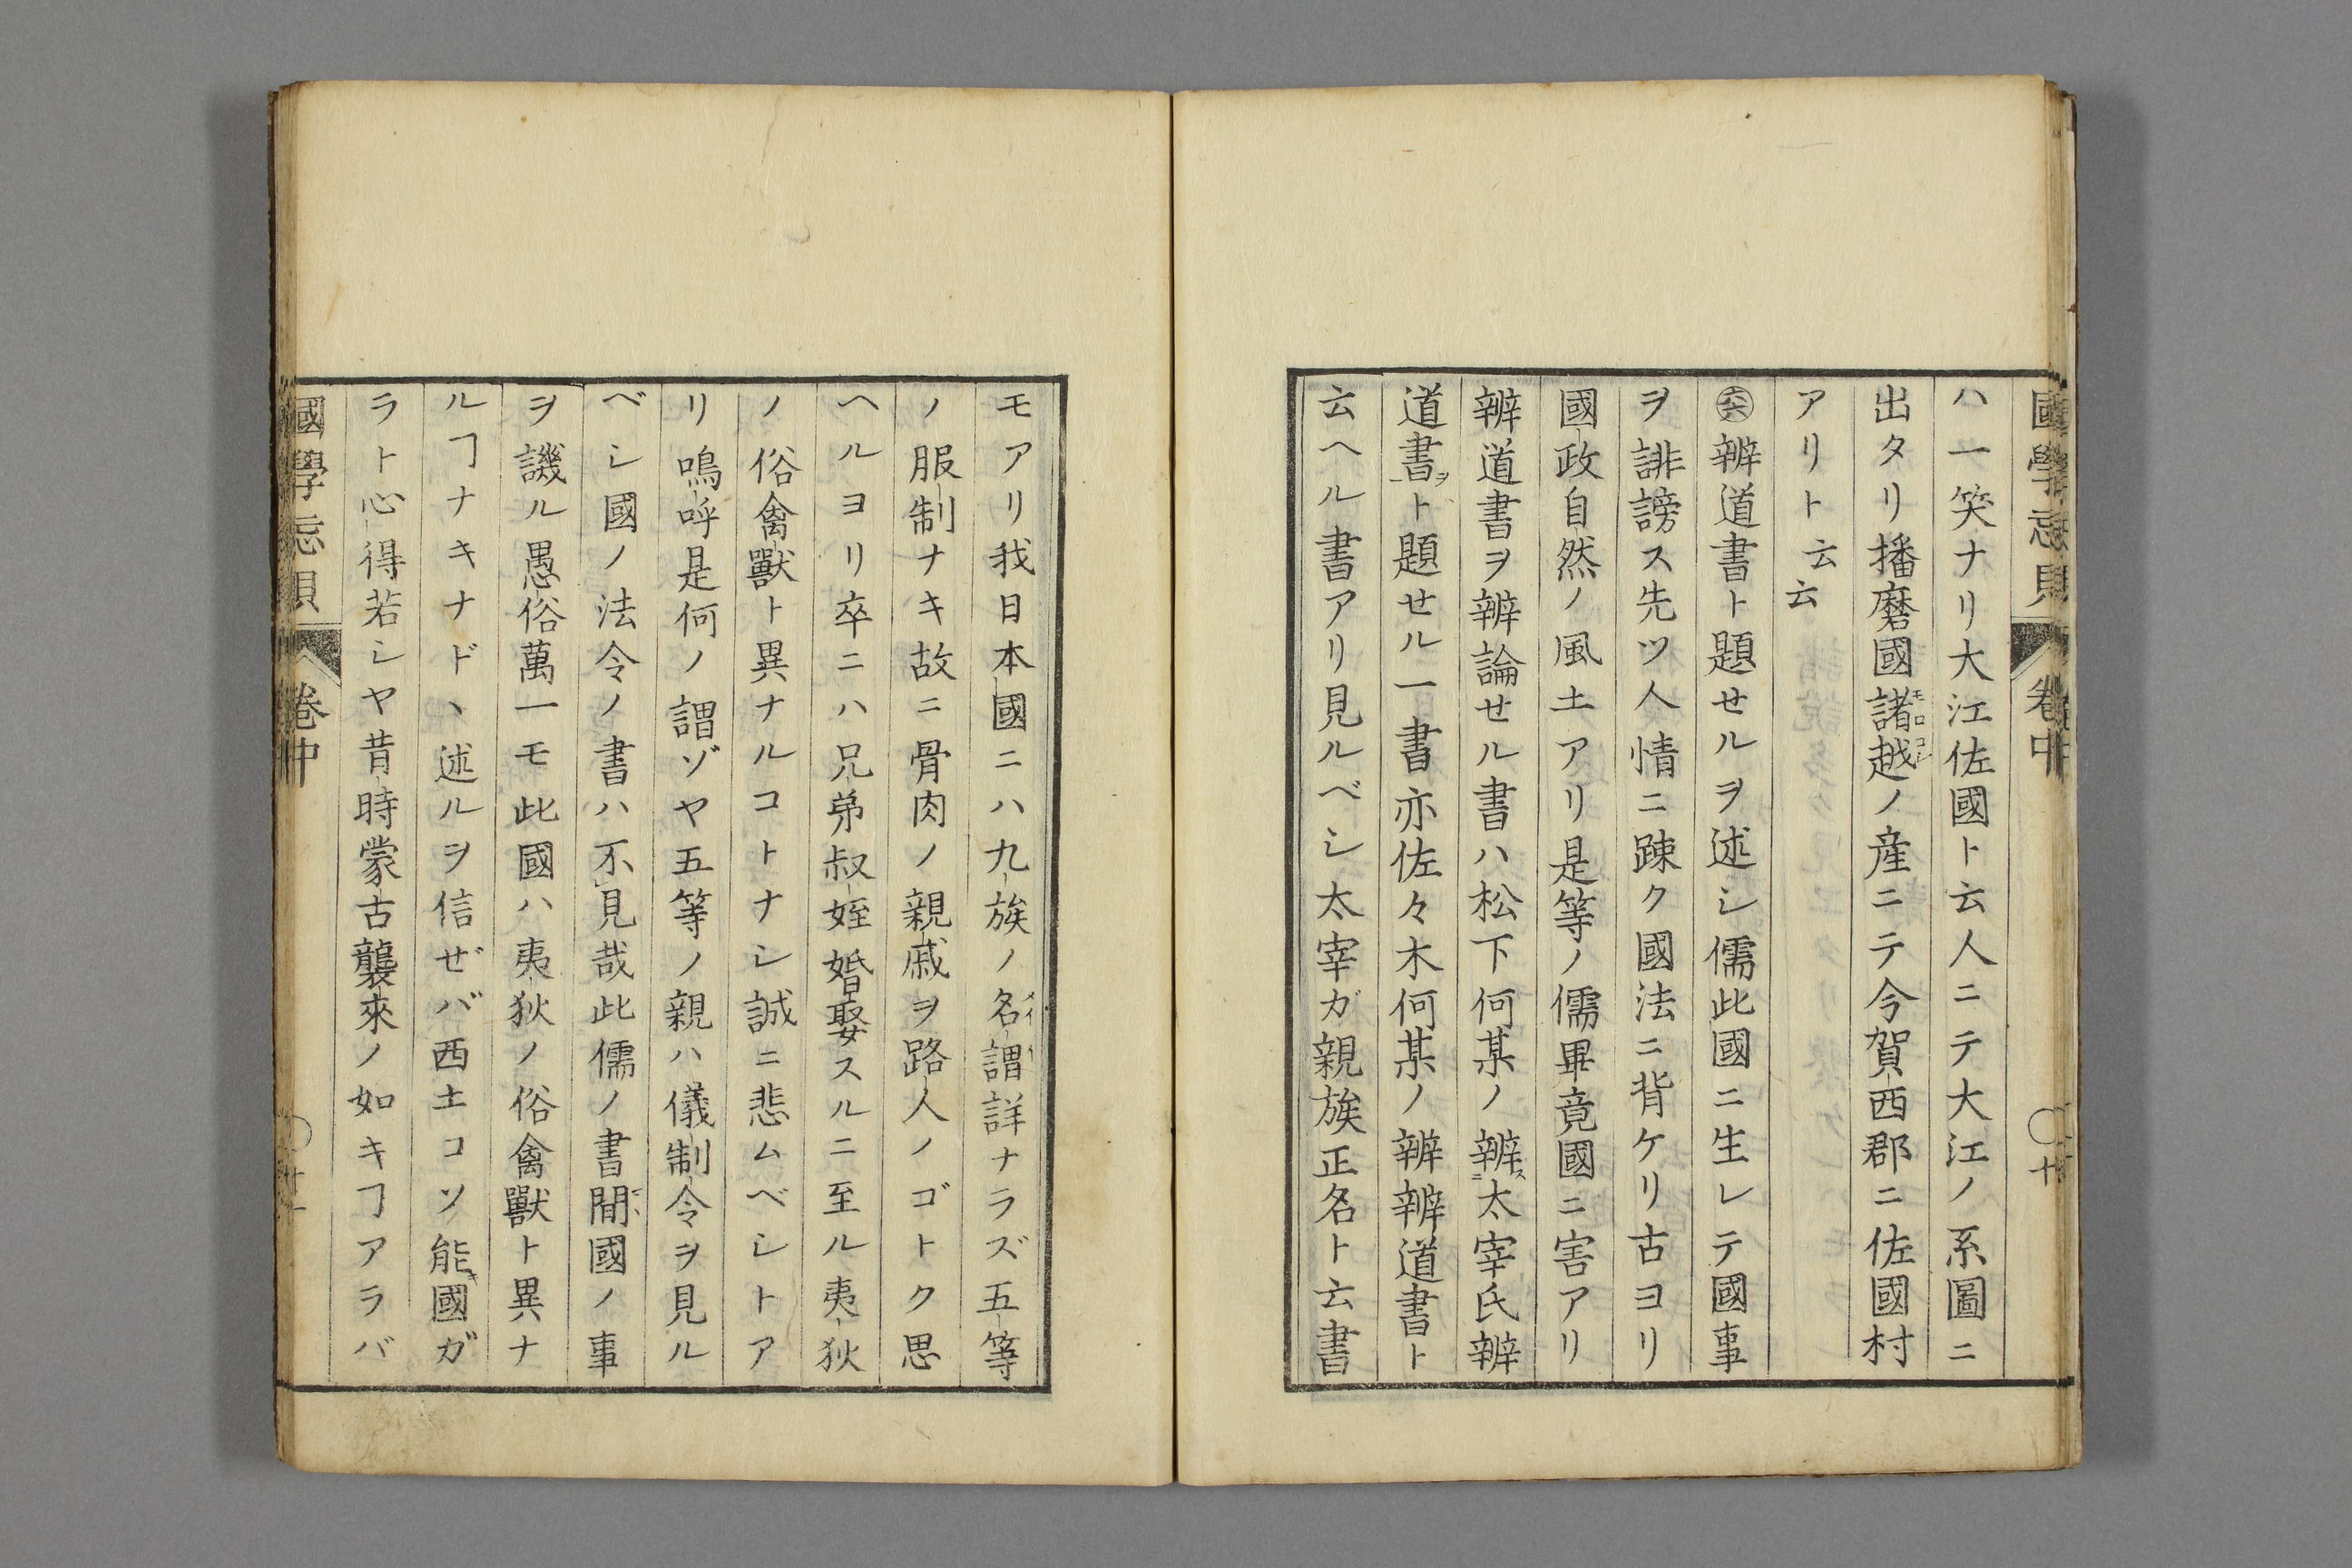 國學忘貝 卷中 ○廿
ハ一笑ナリ大江佐國ト云人ニテ大江ノ系圖ニ
出タリ播磨國諸越モロコシノ産ニテ今賀西郡ニ佐國村
アリト云云
㊅辨道書ト題せルヲ述シ儒此國ニ生レテ國事
ヲ誹謗ス先ツ人情ニ踈ク國法ニ背ケリ古ヨリ
國政自然ノ風土アリ是等ノ儒畢竟國ニ害アリ
辨道書ヲ辨論せル書ハ松下何某ノ辨ス二太宰氏辨
道書ヲ一ト題せル一書亦佐々木何某ノ辨辨道書ト
云ヘル書アリ見ルベシ太宰ガ親族正名ト云書
モアリ我日本國ニハ九族ノ名謂詳ナラズ五等
ノ服制ナキ故ニ骨肉ノ親戚ヲ路人ノゴトク思
ヘルヨリ卒ニハ兄弟叔姪婚娶スルニ至ル夷狄
ノ俗禽獸ト異ナルコトナシ誠ニ悲ムベシトア
リ鳴呼是何ノ謂ゾヤ五等ノ親ハ儀制令ヲ見ル
ベシ國ノ法令ノ書ハ不見哉此儒ノ書間國ノ事
ヲ譏ル愚俗萬一モ此國ハ夷狄ノ俗禽獸ト異ナ
ルヿナキナドヽ述ルヲ信ぜバ西土コソ能キ國ガ
ラト心得若シヤ昔時蒙古襲來ノ如キヿアラバ
國學忘貝 卷中 ○廿一